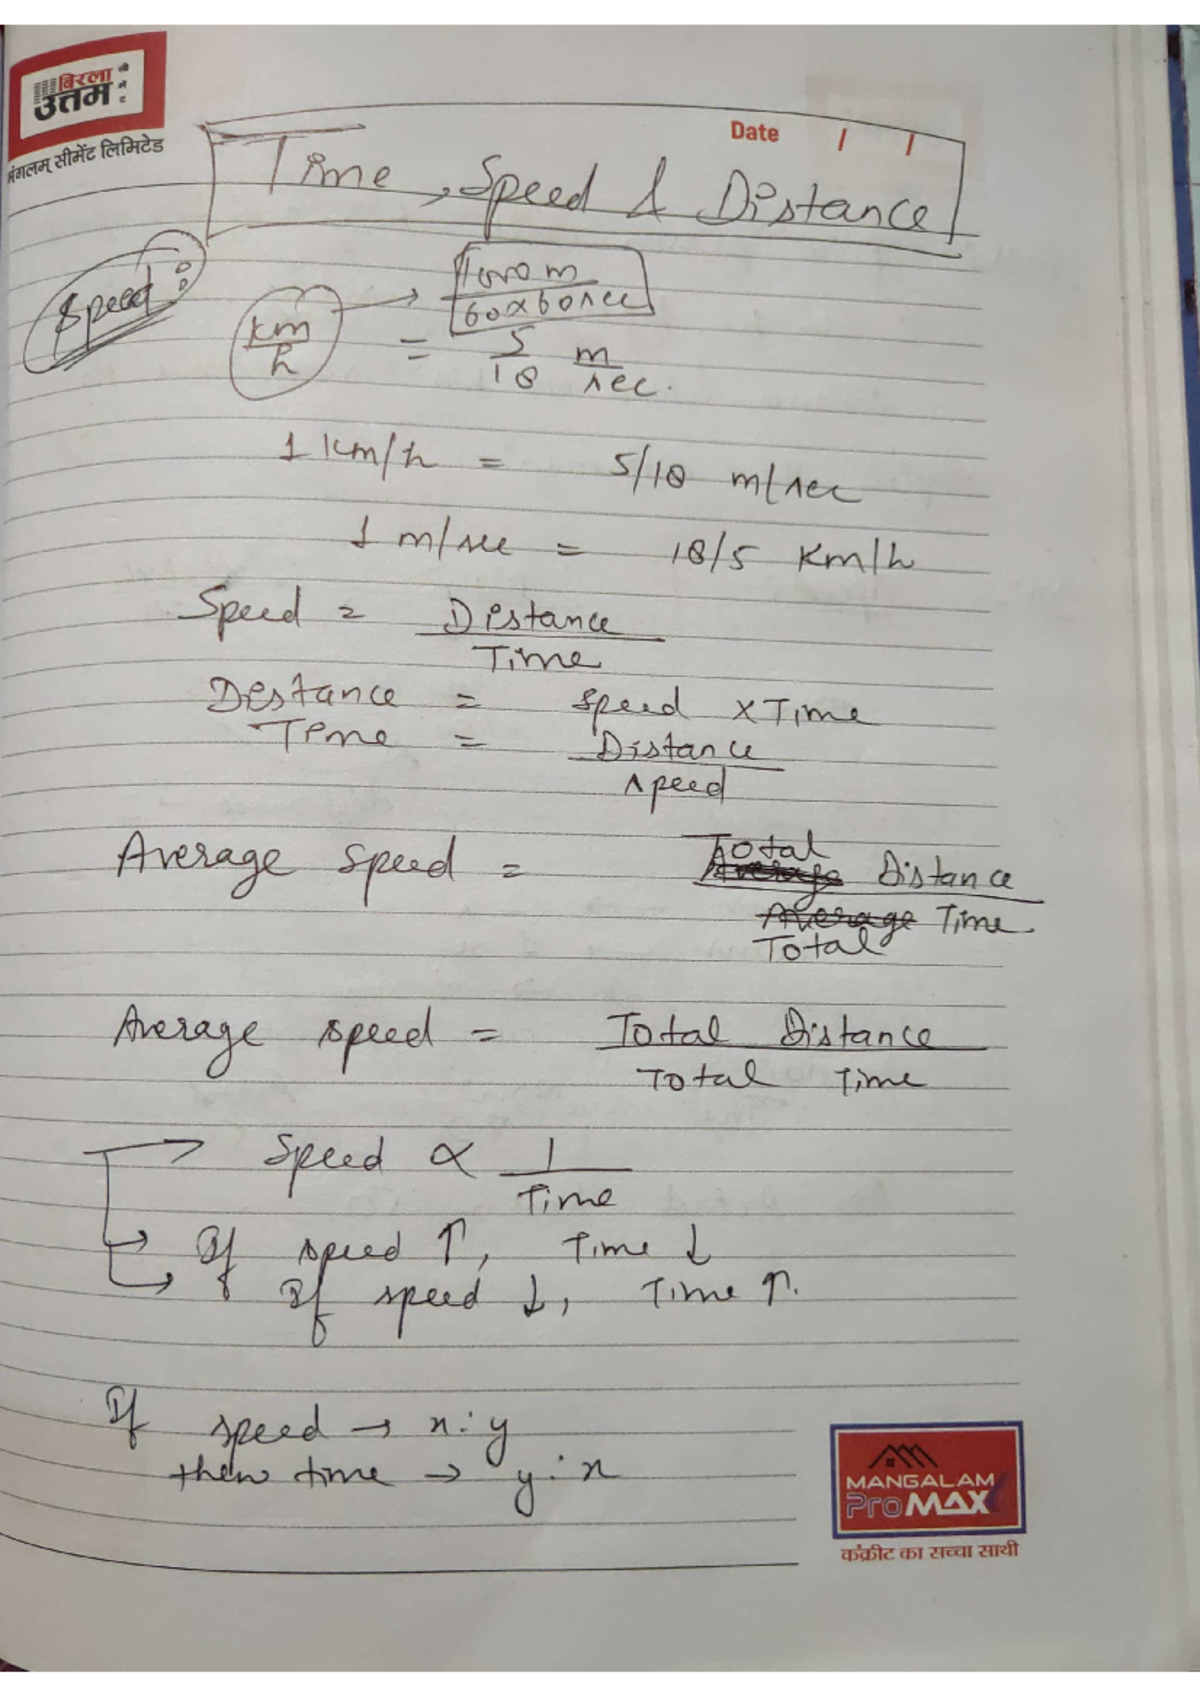 बिरला
उत्तम
मंगलम् सीमेंट लिमिटेड
Date / /
Time, Speed & Distance
Speed :
km/h → 1000 m / 60 x 60 sec
= 5/18 m/sec.
1 km/h = 5/18 m/sec
1 m/sec = 18/5 km/h
Speed = Distance / Time
Distance = Speed x Time
Time = Distance / speed
Average speed = Total ~~Average~~ Distance / ~~Average~~ Time Total
Average speed = Total Distance / Total Time
→ Speed ∝ 1 / Time
→ If speed ↑, Time ↓
→ If speed ↓, Time ↑.
If speed → x : y
then time → y : x
MANGALAM
ProMAX
कंक्रीट का सच्चा साथी